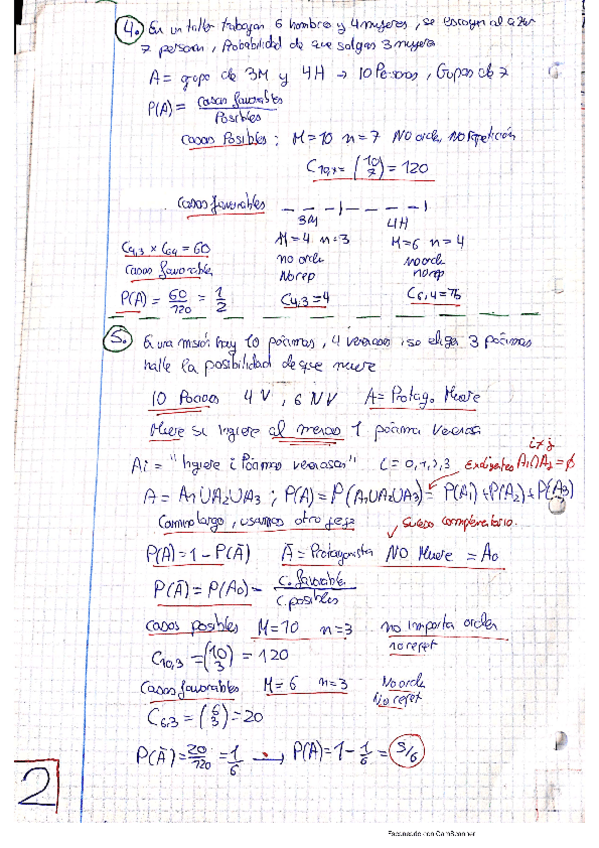 4. En un taller trabajan 6 hombres y 4 mujeres, se escogen al azar
7 personas, Probabilidad de que salgan 3 mujeres
A = grupo de 3M y 4H → 10 Personas, Grupos de 7
P(A) = casos favorables / Posibles
Casos Posibles: M=10 n=7 NO orden, NO Repetición
C10,7 = (10 7) = 120
Casos favorables
3M 4H
C4,3 x C6,4 = 60 M=4 n=3 M=6 n=4
casos favorables no orden no orden
P(A) = 60/120 = 1/2 No rep no rep
C4,3 = 4 C6,4 = 15
5. En una misión hay 10 pócimas, 4 venenosas, se eligen 3 pócimas
halle la posibilidad de que muere
10 Pócimas 4V, 6 NV A = Protag. Muere
Muere si ingiere al menos 1 pócima venenosa
i≠j
Ai = "Ingiere i Pócimas venenosas" i = 0,1,2,3 Excluyentes A1∩A2 = ∅
A = A1∪A2∪A3; P(A) = P(A1∪A2∪A3) = P(A1)+P(A2)+P(A3)
Camino largo, usamos otro
✓ Suceso complementario.
P(A) = 1 - P(Ā) Ā = Protagonista NO Muere = A0
P(Ā) = P(A0) = C. favorable / C. posibles
Casos posibles M=10 n=3 no importa orden
C10,3 = (10 3) = 120 no repet
Casos favorables M=6 n=3 No orden
C6,3 = (6 3) = 20 No repet
P(Ā) = 20/120 = 1/6 → P(A) = 1 - 1/6 = 5/6
2
Escaneado con CamScanner